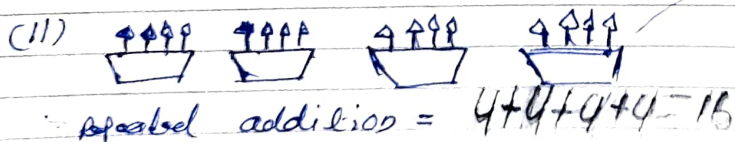 (11)
Repeated addition = 4+4+4+4=16